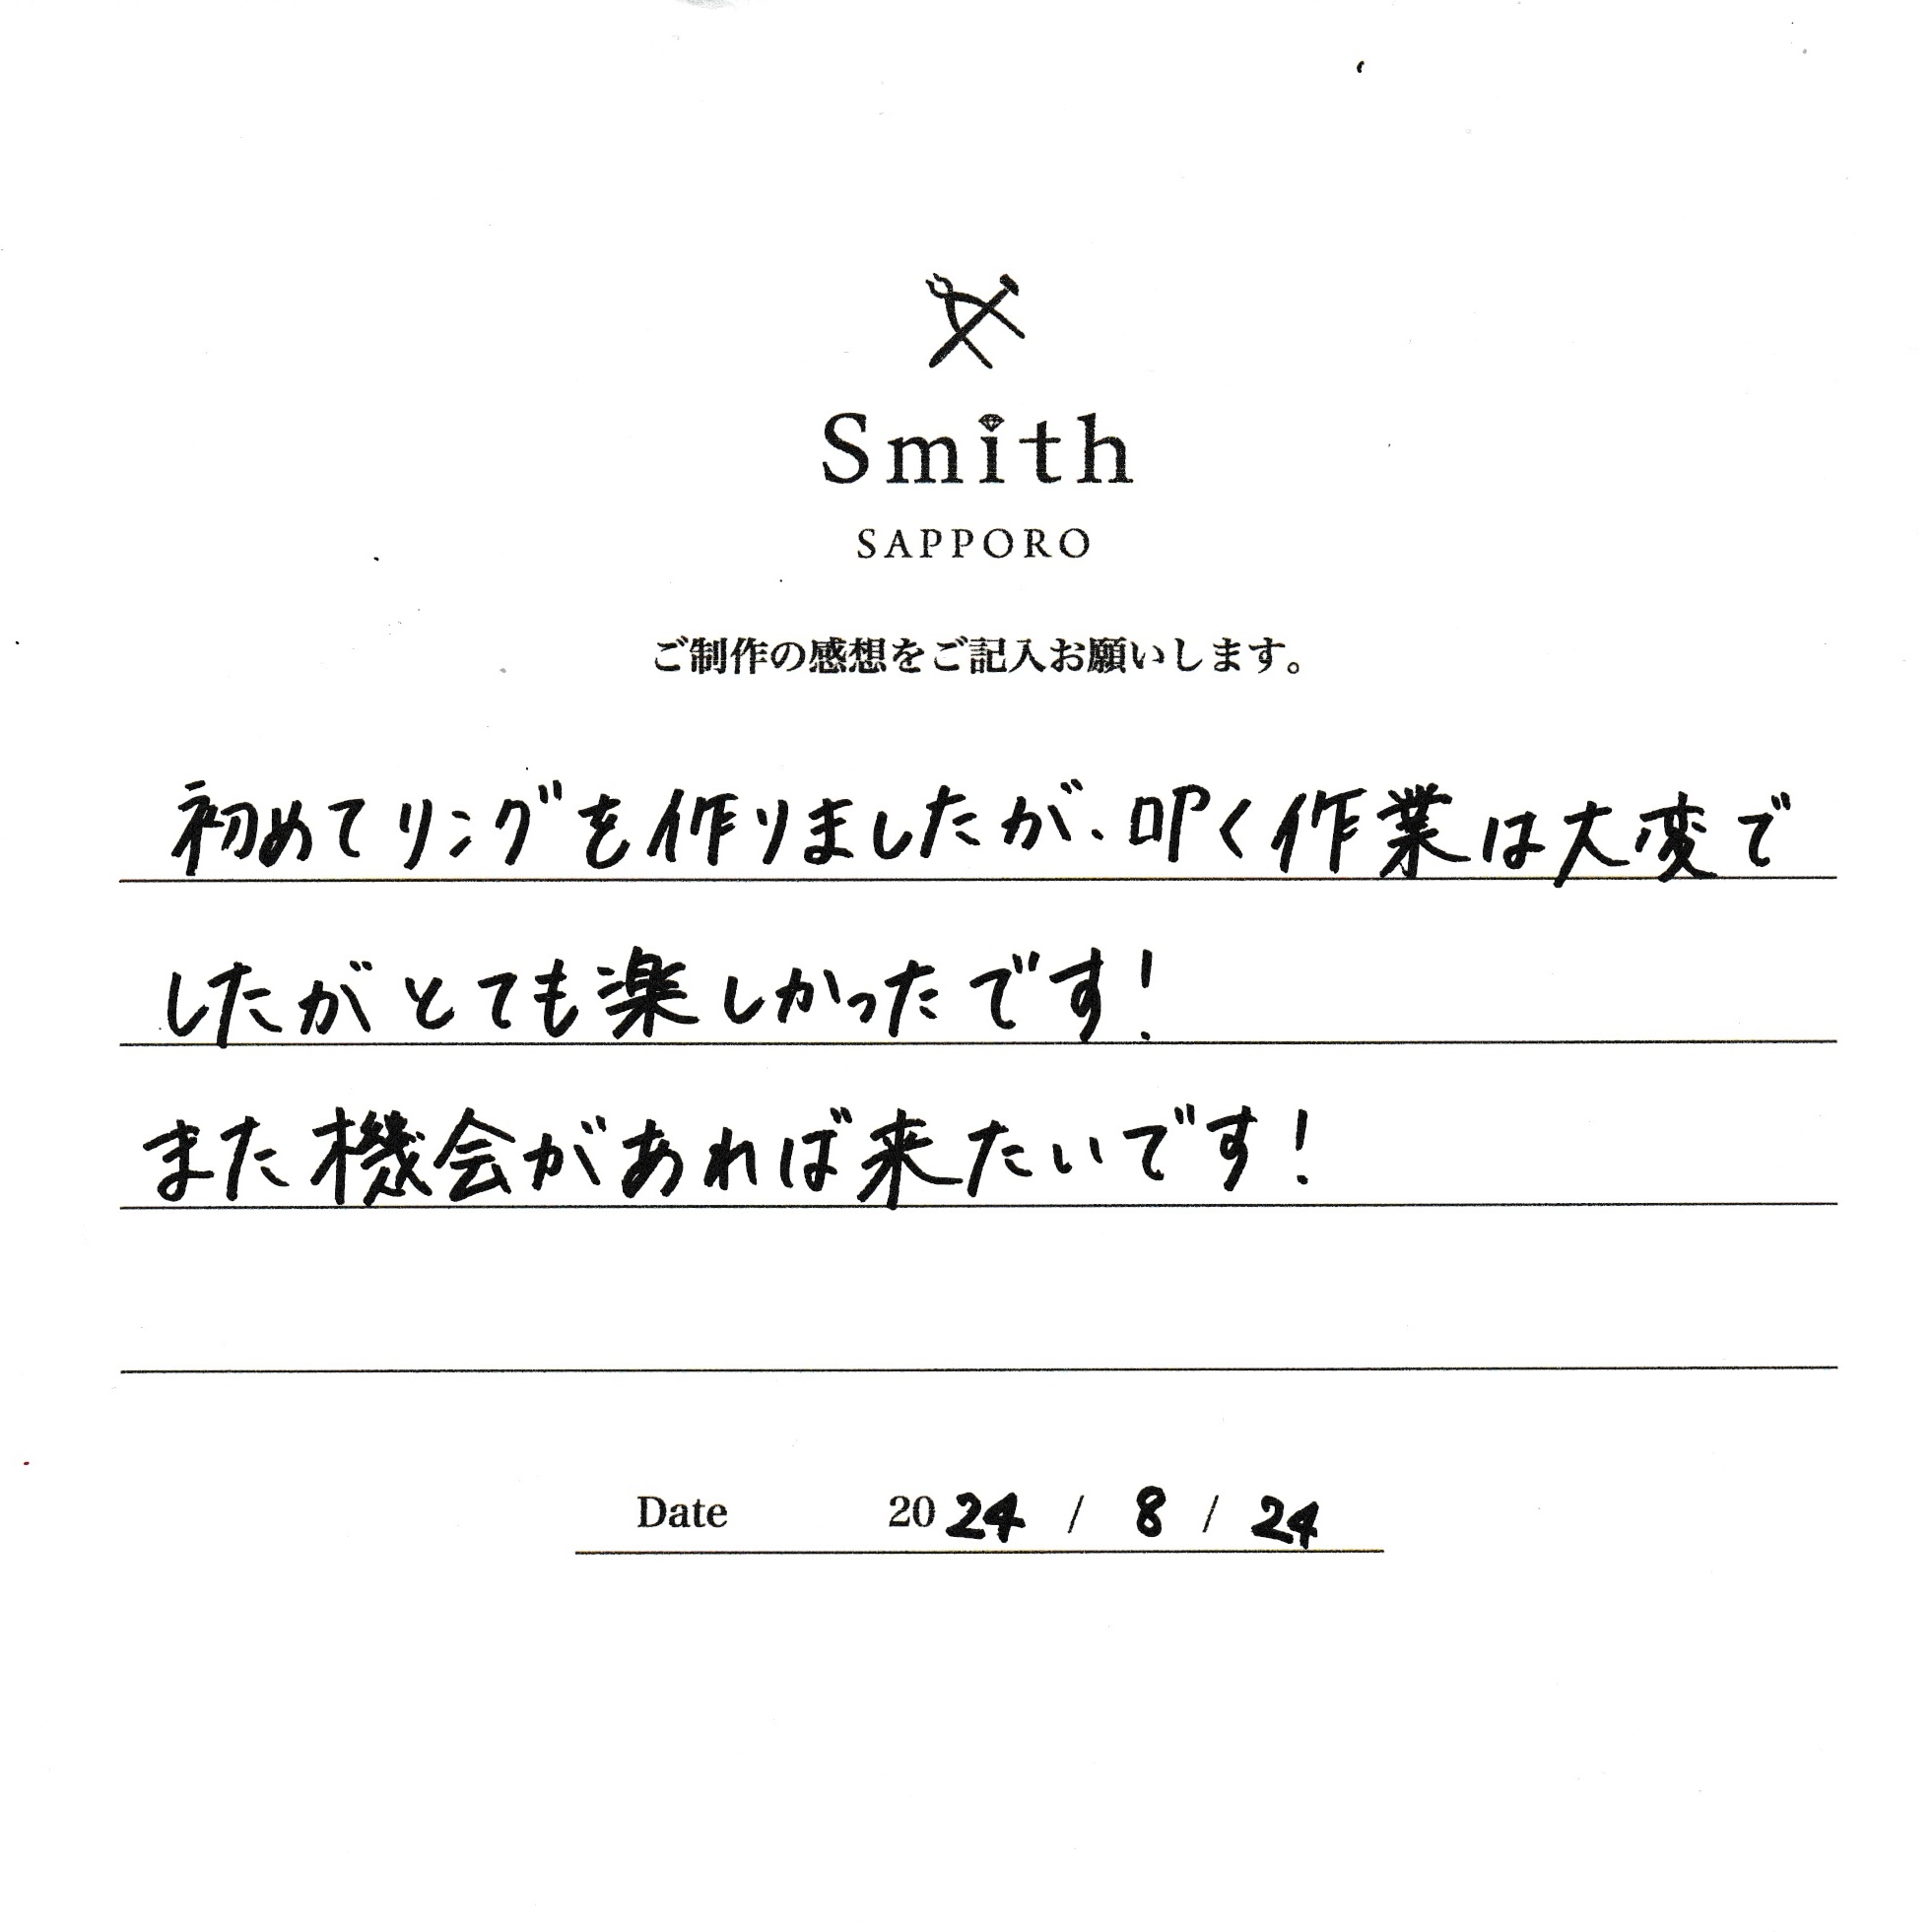 Smith
SAPPORO
ご制作の感想をご記入お願いします。
初めてリングを作りましたが、叩く作業は大変で
したがとても楽しかったです!
また機会があれば来たいです!
Date 2024 / 8 / 24